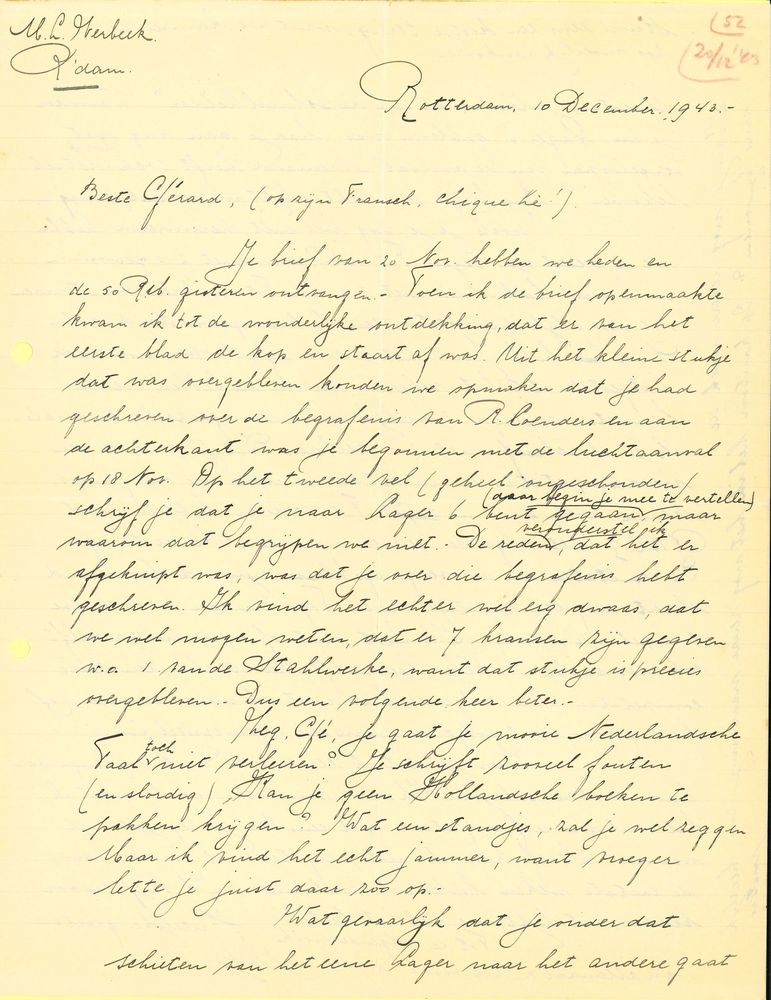 M. L. Werbeek.
R'dam.
52
20/12 '43
Rotterdam, 10 December. 1943.-
Beste Gérard, (op zijn Fransch, chique hè!).
Je brief van 20 Nov. hebben we heden en
de 50 Rib. gisteren ontvangen.- Toen ik de brief openmaakte
kwam ik tot de wonderlijke ontdekking, dat er van het
eerste blad de kop en staart af was. Uit het kleine stukje
dat was overgebleven konden we opmaken dat je had
geschreven over de begrafenis van R. Coenders en aan
de achterkant was je begonnen met de luchtaanval
op 18 Nov. Op het tweede vel (geheel ongeschonden)
(daar begin je mee te vertellen)
schrijf je dat je naar Lager 6 bent gegaan, maar
veronderstel ik
waarom dat begrijpen we niet.- De reden, dat het er
afgeknipt was, was dat je over die begrafenis hebt
geschreven. Ik vind het echter wel erg dwaas, dat
we wel mogen weten, dat er 7 kransen zijn gegeven
w.o. 1 van de Stahlwerke, want dat stukje is precies
overgebleven.- Dus een volgende keer beter.-
Zeg, Gé, je gaat je mooie Nederlandsche
toch
Taal niet verleeren? Je schrijft zooveel fouten
(en slordig). Kan je geen Hollandsche boeken te
pakken krijgen? Wat een standjes, zal je wel zeggen
Maar ik vind het echt jammer, want vroeger
lette je juist daar zoo op.-
Wat gevaarlijk dat je onder dat
schieten van het eene Lager naar het andere gaat